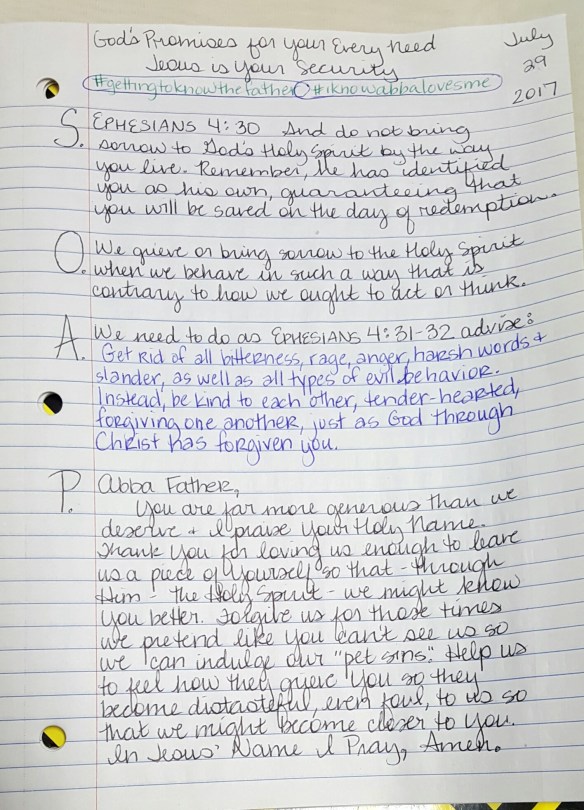 God's Promises for Your Every Need
Jesus is Your Security
#gettingtoknowtheFather #iknowabbalovesme
July
29
2017
S. EPHESIANS 4:30 And do not bring
sorrow to God's Holy Spirit by the way
you live. Remember, He has identified
you as his own, guaranteeing that
you will be saved on the day of redemption.
O. We grieve or bring sorrow to the Holy Spirit
when we behave in such a way that is
contrary to how we ought to act or think.
A. We need to do as EPHESIANS 4:31-32 advise:
Get rid of all bitterness, rage, anger, harsh words +
slander, as well as all types of evil behavior.
Instead, be kind to each other, tender-hearted,
forgiving one another, just as God through
Christ has forgiven you.
P. Abba Father,
You are far more generous than we
deserve + I praise Your Holy Name.
Thank You for loving us enough to leave
us a piece of Yourself so that - through
Him - the Holy Spirit - we might know
You better. Forgive us for those times
we pretend like You can't see us so
we can indulge our "pet sins". Help us
to feel how they grieve You so they
become distasteful, even foul, to us so
that we might become closer to You.
In Jesus' Name I Pray, Amen.